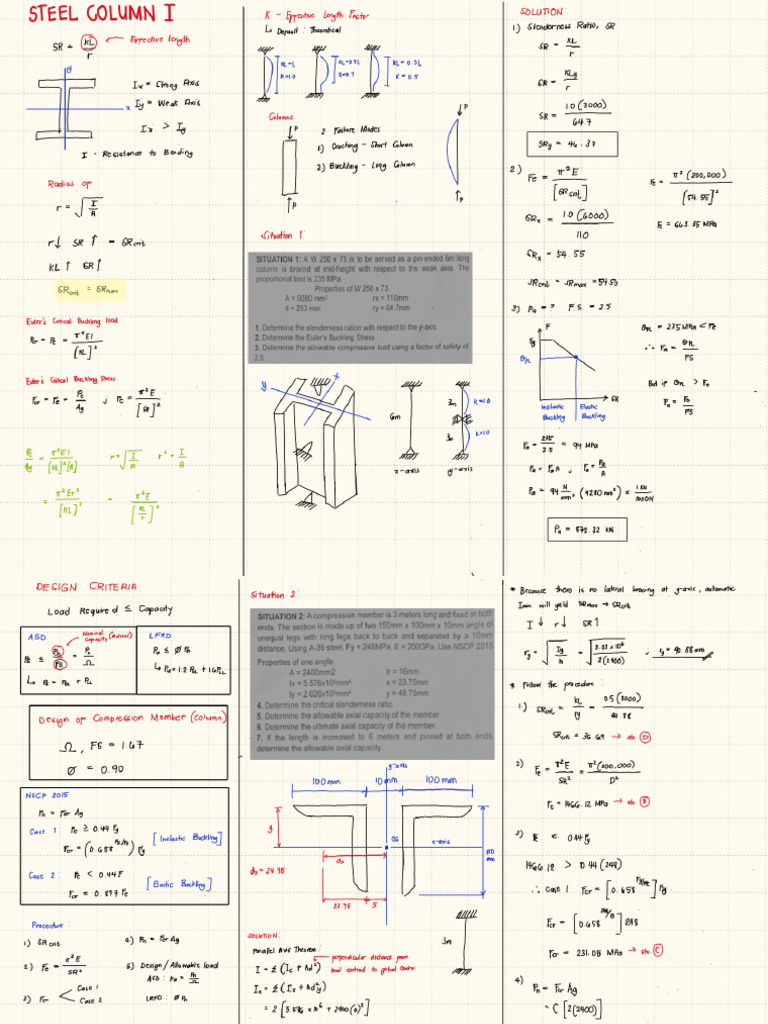 STEEL COLUMN I
SR = KL / r ← Effective length
y
x
Ix = Strong Axis
Iy = Weak Axis
Ix > Iy
I - Resistance to Bending
Radius of
r = √(I/A)
r↓ SR ↑ = SRcrit
KL ↑ SR↑
SRcrit = SRmax
Euler's Critical Buckling load
Pcr = PE = π²EI / [KL]²
Euler's Critical Buckling Stress
Fcr = Fe = PE / Ag ; Fe = π²E / [SR]²
PE / Ag = π²EI / [KL]²[A] r = √(I/A) r² = I/A
= π²Er² / [KL]² = π²E / [KL/r]²
K - Effective Length Factor
↳ Default: Theoretical
KL=L
K=1.0
K=0.7
KL = 0.5L
K = 0.5
Columns
P
P
2 Failure Modes
1) Crushing - Short Column
2) Buckling - Long Column
P
P
Situation 1
SITUATION 1: A W 250 x 73 is to be served as a pin-ended 6m long
column is braced at mid-height with respect to the weak axis. The
proportional limit is 235 MPa.
Properties of W 250 x 73
A = 9280 mm² rx = 110mm
d = 253 mm ry = 64.7mm
1. Determine the slenderness ration with respect to the y-axis
2. Determine the Euler's Buckling Stress
3. Determine the allowable compressive load using a factor of safety of
2.5
y
x
6m
x-axis
3m
K=1.0
3m
K=1.0
y-axis
SOLUTION:
1) Slenderness Ratio, SR
SR = KL / r
SR = KLy / r
SR = 1.0 (3000) / 64.7
SRy = 46.37
2) Fe = π²E / [SRcrit]
Fe = π² (200,000) / [54.55]²
SRx = 1.0 (6000) / 110
Fe = 663.35 MPa
SRx = 54.55
SRcrit = SRmax = 54.55
3) Pa = ? F.S. = 2.5
F
Fy
SR
Inelastic Buckling
Elastic Buckling
= 235 MPa < Fe
∴ Fa = / FS
But if > Fe
Fa = Fe / FS
Fa = 235 / 2.5 = 94 MPa
Pa = Fa A ; Fa = Pa / A
Pa = 94 N/mm² (9280 mm²) × 1 KN / 1000N
Pa = 872.32 KN
DESIGN CRITERIA
Load Required ≤ Capacity
ASD
Nominal capacity
≤ Pn / FS = Pn / Ω
LFRD
Pu ≤ Ø Pn
↳ Pu = 1.2 PDL + 1.6 PLL
Design of Compression Member (column)
Ω, FS = 1.67
Ø = 0.90
NSCP 2015
Pn = Fcr Ag
Case 1: Fe ≥ 0.44 Fy
Fcr = (0.658^(Fy/Fe)) Fy
[Inelastic Buckling]
Case 2: Fe < 0.44F
Fcr = 0.877 Fe
[Elastic Buckling]
Procedure:
1) SRcrit
2) Fe = π²E / SR²
3) Fcr < Case 1
Case 2
4) Pn = Fcr Ag
5) Design/Allowable load
ASD: Pa = Pn / Ω
LRFD: Ø Pn
Situation 2:
SITUATION 2: A compression member is 3 meters long and fixed at both
ends. The section is made up of two 150mm x 100mm x 10mm angle of
unequal legs with long legs back to back and separated by a 10mm
distance. Using A-36 steel, Fy = 248MPa, E = 200GPa. Use NSCP 2015
Properties of one angle:
A = 2400mm2 tr = 16mm
Ix = 5.576x10⁶mm⁴ x = 23.75mm
Iy = 2.026x10⁶mm⁴ y = 48.75mm
4. Determine the critical slenderness ratio.
5. Determine the allowable axial capacity of the member.
6. Determine the ultimate axial capacity of the member.
7. If the length is increased to 6 meters and pinned at both ends,
determine the allowable axial capacity.
y-axis
100mm 10mm 100mm
y
x-axis
dx
23.75 5
3m
SOLUTION:
Parallel Axis Theorem:
perpendicular distance from
I = Σ (Ic + Ad²)
Ix = Σ (Ix + Ad²y)
= 2 [5.576 × 10⁶ + 2400 (0)²]
* Because there is no lateral bracing at y-axis, automatic
Imin will yield SRmax → SRcrit
I↓ r↓ SR↑
ry = √(Iy/A) = ∴ ry = 40.88mm
* Follow the procedure:
1) SRcrit = KL / ry = 0.5 (3000) / 40.88
SRcrit = 36.69 → sto D
2) Fe = π²E / SR² = π²(200,000) / D²
Fe = 1466.12 MPa → sto B
3) 0.44 Fy
1466.12 > 0.44 (248)
∴ Case 1 Fcr = [0.658^(Fy/Fe)] Fy
Fcr = [0.658] 248
Fcr = 231.05 MPa → sto C
4) Pn = Fcr Ag
= C [2(2400)]